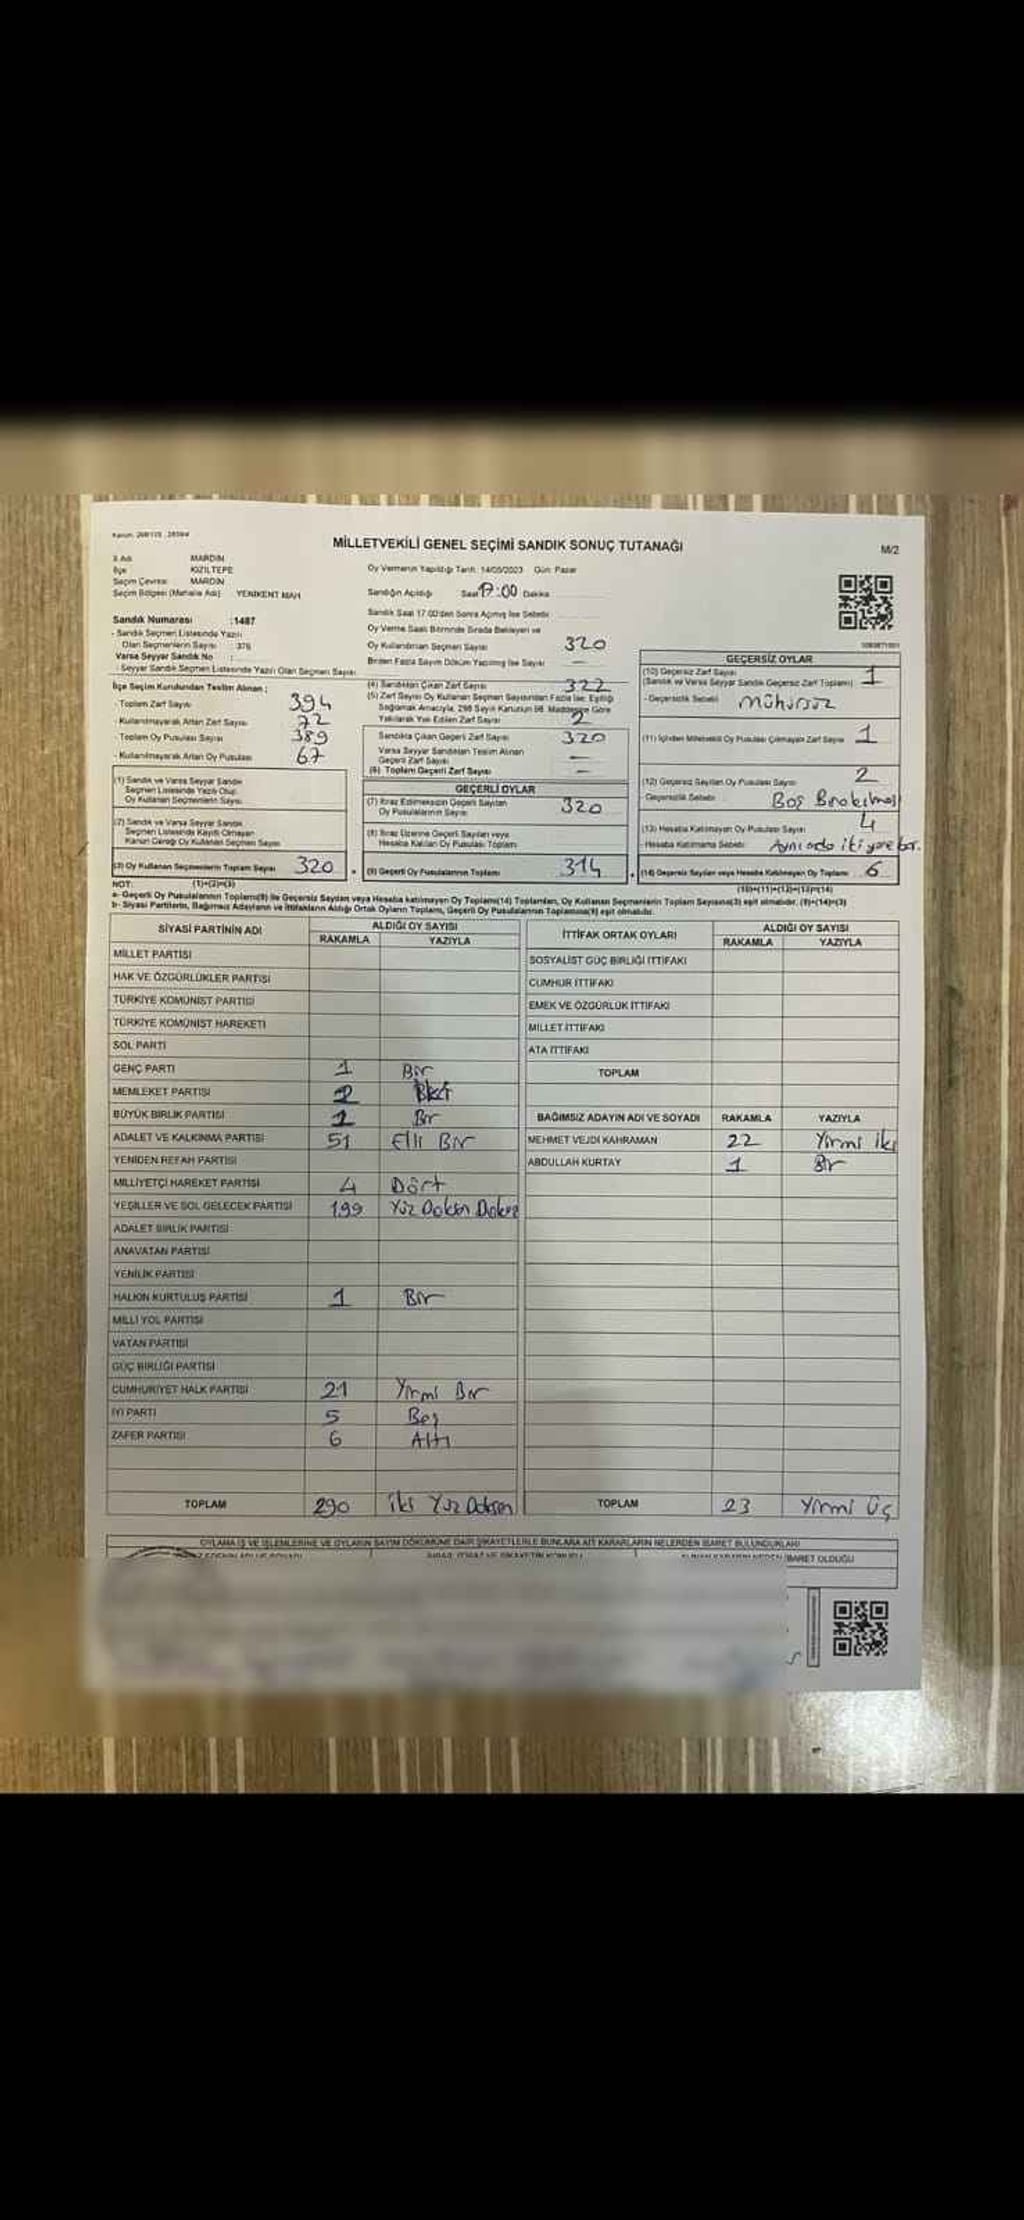 MİLLETVEKİLİ GENEL SEÇİMİ SANDIK SONUÇ TUTANAĞI
M/2
İl Adı MARDİN
İlçe KIZILTEPE
Seçim Çevresi MARDİN
Seçim Bölgesi (Mahalle Adı) YENİKENT MAH
Oy Vermenin Yapıldığı Tarih: 14/05/2023 Gün: Pazar
Sandığın Açıldığı Saat 17:00 Dakika
Sandık Saat 17:00'den Sonra Açılmış İse Sebebi
Oy Verme Saati Bitiminde Sırada Bekleyen ve
Oy Kullandırılan Seçmen Sayısı 320
Birden Fazla Sayım Döküm Yapılmış İse Sayısı —
Sandık Numarası :1487
- Sandık Seçmen Listesinde Yazılı
Olan Seçmenlerin Sayısı 376
Varsa Seyyar Sandık No :
- Seyyar Sandık Seçmen Listesinde Yazılı Olan Seçmen Sayısı
İlçe Seçim Kurulundan Teslim Alınan ;
- Toplam Zarf Sayısı 394
- Kullanılmayarak Artan Zarf Sayısı 72
- Toplam Oy Pusulası Sayısı 389
- Kullanılmayarak Artan Oy Pusulası 67
(1) Sandık ve Varsa Seyyar Sandık
Seçmen Listesinde Yazılı Olup
Oy Kullanan Seçmenlerin Sayısı
(2) Sandık ve Varsa Seyyar Sandık
Seçmen Listesinde Kayıtlı Olmayan
Kanun Gereği Oy Kullanan Seçmen Sayısı
(3) Oy Kullanan Seçmenlerin Toplam Sayısı 320
(1)+(2)=(3)
(4) Sandıktan Çıkan Zarf Sayısı 322
(5) Zarf Sayısı Oy Kullanan Seçmen Sayısından Fazla İse; Eşitliği
Sağlamak Amacıyla, 298 Sayılı Kanunun 98. Maddesine Göre
Yakılarak Yok Edilen Zarf Sayısı 2
Sandıkta Çıkan Geçerli Zarf Sayısı 320
Varsa Seyyar Sandıktan Teslim Alınan
Geçerli Zarf Sayısı —
(6) Toplam Geçerli Zarf Sayısı —
GEÇERLİ OYLAR
(7) İtiraz Edilmeksizin Geçerli Sayılan
Oy Pusulalarının Sayısı 320
(8) İtiraz Üzerine Geçerli Sayılan veya
Hesaba Katılan Oy Pusulası Toplamı
(9) Geçerli Oy Pusulalarının Toplamı 314
GEÇERSİZ OYLAR
(10) Geçersiz Zarf Sayısı 1
(Sandık ve Varsa Seyyar Sandık Geçersiz Zarf Toplamı)
- Geçersizlik Sebebi Mühürsüz
(11) İçinden Milletvekili Oy Pusulası Çıkmayan Zarf Sayısı 1
(12) Geçersiz Sayılan Oy Pusulası Sayısı 2
Geçersizlik Sebebi Boş Bırakılması
(13) Hesaba Katılmayan Oy Pusulası Sayısı 4
- Hesaba Katılmama Sebebi
(14) Geçersiz Sayılan veya Hesaba Katılmayan Oy Toplamı 6
(10)+(11)+(12)+(13)=(14)
NOT:
a- Geçerli Oy Pusulalarının Toplamı(9) ile Geçersiz Sayılan veya Hesaba katılmayan Oy Toplamı(14) Toplamları, Oy Kullanan Seçmenlerin Toplam Sayısına(3) eşit olmalıdır. (9)+(14)=(3)
b- Siyasi Partilerin, Bağımsız Adayların ve İttifakların Aldığı Ortak Oyların Toplamı, Geçerli Oy Pusulalarının Toplamına(9) eşit olmalıdır.
SİYASİ PARTİNİN ADI ALDIĞI OY SAYISI
RAKAMLA YAZIYLA
MİLLET PARTİSİ
HAK VE ÖZGÜRLÜKLER PARTİSİ
TÜRKİYE KOMÜNİST PARTİSİ
TÜRKİYE KOMÜNİST HAREKETİ
SOL PARTİ
GENÇ PARTİ 1 Bir
MEMLEKET PARTİSİ 2
BÜYÜK BİRLİK PARTİSİ 1 Bir
ADALET VE KALKINMA PARTİSİ 51 Elli Bir
YENİDEN REFAH PARTİSİ
MİLLİYETÇİ HAREKET PARTİSİ 4 Dört
YEŞİLLER VE SOL GELECEK PARTİSİ 199 Yüz Doksan Dokuz
ADALET BİRLİK PARTİSİ
ANAVATAN PARTİSİ
YENİLİK PARTİSİ
HALKIN KURTULUŞ PARTİSİ 1 Bir
MİLLİ YOL PARTİSİ
VATAN PARTİSİ
GÜÇ BİRLİĞİ PARTİSİ
CUMHURİYET HALK PARTİSİ 21 Yirmi Bir
İYİ PARTİ 5 Beş
ZAFER PARTİSİ 6 Altı
TOPLAM 290 İki Yüz Doksan
İTTİFAK ORTAK OYLARI ALDIĞI OY SAYISI
RAKAMLA YAZIYLA
SOSYALİST GÜÇ BİRLİĞİ İTTİFAKI
CUMHUR İTTİFAKI
EMEK VE ÖZGÜRLÜK İTTİFAKI
MİLLET İTTİFAKI
ATA İTTİFAKI
TOPLAM
BAĞIMSIZ ADAYIN ADI VE SOYADI RAKAMLA YAZIYLA
MEHMET VEJDİ KAHRAMAN 22 Yirmi iki
ABDULLAH KURTAY 1 Bir
TOPLAM 23 Yirmi Üç
OYLAMA İŞ VE İŞLEMLERİNE VE OYLARIN SAYIM DÖKÜMÜNE DAİR ŞİKAYETLERLE BUNLARA AİT KARARLARIN NELERDEN İBARET BULUNDUKLARI